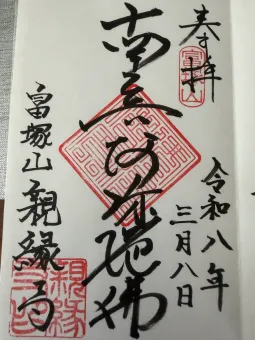 奉拝
令和八年
三月八日
南無阿弥陀佛
畠塚山 親縁寺